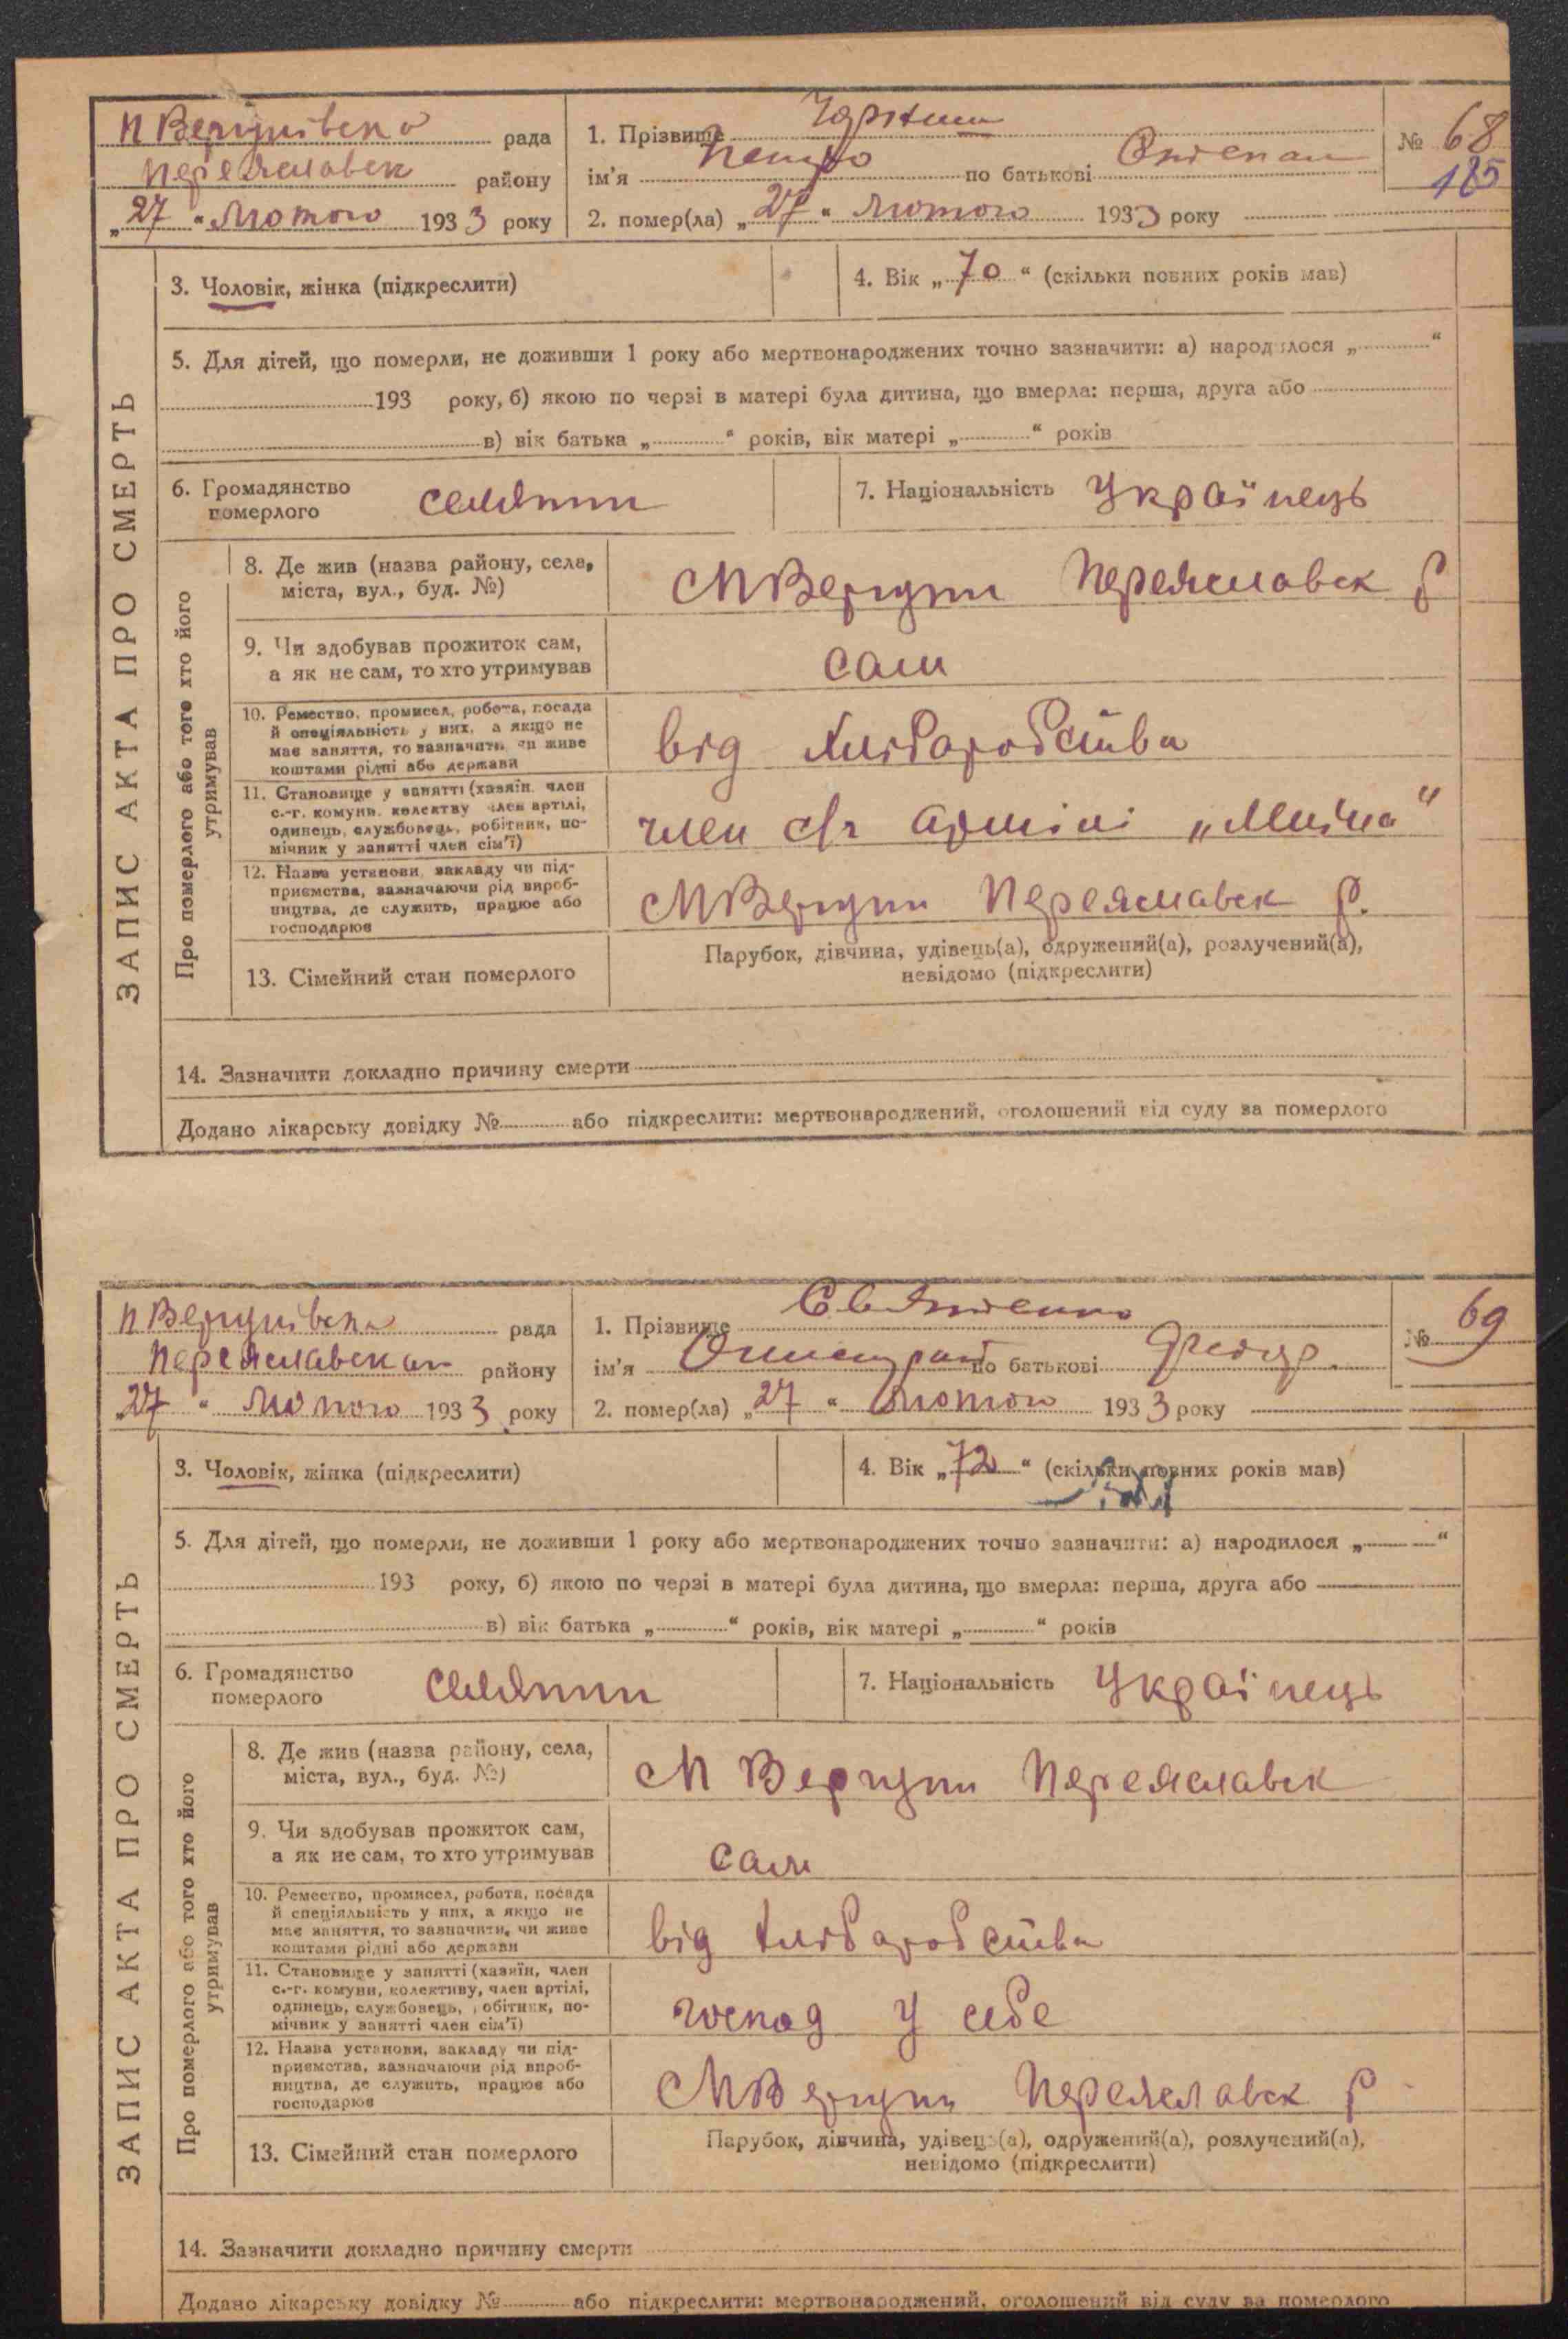 п Вергунівська рада
Переяславск району
„27“ Лютого 1933 року
1. Прізвище
ім'я Петро по батькові
2. помер(ла) „27“ Лютого 1933 року
№ 68
185
ЗАПИС АКТА ПРО СМЕРТЬ
3. Чоловік, жінка (підкреслити)
4. Вік „70“ (скільки повних років мав)
5. Для дітей, що померли, не доживши 1 року або мертвонароджених точно зазначити: а) народилося „ “
193 року, б) якою по черзі в матері була дитина, що вмерла: перша, друга або
в) вік батька „ “ років, вік матері „ “ років
6. Громадянство
померлого
селянин
7. Національність Українець
Про померлого або того хто його
утримував
8. Де жив (назва району, села,
міста, вул., буд. №)
МВергуни Переяславск р
9. Чи здобував прожиток сам,
а як не сам, то хто утримував
сам
10. Ремество, промисел, робота, посада
й спеціяльність у них, а якщо не
має заняття, то зазначити, чи живе
коштами рідні або держави
від хліборобства
11. Становище у занятті (хазяїн, член
с.-г. комуни, колективу, член артілі,
одинець, службовець, робітник, по-
мічник у занятті член сім'ї)
член с/г артілі
12. Назва установи, закладу чи під-
приємства, зазначаючи рід вироб-
ництва, де служить, працює або
господарює
МВергуни Переяславск р.
13. Сімейний стан померлого
Парубок, дівчина, удівець(а), одружений(а), розлучений(а),
невідомо (підкреслити)
14. Зазначити докладно причину смерти
Додано лікарську довідку № або підкреслити: мертвонароджений, оголошений від суду за померлого
п Вергунівська рада
Переяславскаго району
„27“ Лютого 1933 року
1. Прізвище
ім'я по батькові Федор.
2. помер(ла) „27“ Лютого 1933 року
№ 69
ЗАПИС АКТА ПРО СМЕРТЬ
3. Чоловік, жінка (підкреслити)
4. Вік „72“ (скільки повних років мав)
5. Для дітей, що померли, не доживши 1 року або мертвонароджених точно зазначити: а) народилося „ “
193 року, б) якою по черзі в матері була дитина, що вмерла: перша, друга або
в) вік батька „ “ років, вік матері „ “ років
6. Громадянство
померлого
селянин
7. Національність Українець
Про померлого або того хто його
утримував
8. Де жив (назва району, села,
міста, вул., буд. №)
М Вергуни Переяславск
9. Чи здобував прожиток сам,
а як не сам, то хто утримував
сам
10. Ремество, промисел, робота, посада
й спеціяльність у них, а якщо не
має заняття, то зазначити, чи живе
коштами рідні або держави
від хліборобства
11. Становище у занятті (хазяїн, член
с.-г. комуни, колективу, член артілі,
одинець, службовець, робітник, по-
мічник у занятті член сім'ї)
господ у себе
12. Назва установи, закладу чи під-
приємства, зазначаючи рід вироб-
ництва, де служить, працює або
господарює
МВергуни Переяславск р
13. Сімейний стан померлого
Парубок, дівчина, удівець(а), одружений(а), розлучений(а),
невідомо (підкреслити)
14. Зазначити докладно причину смерти
Додано лікарську довідку № або підкреслити: мертвонароджений, оголошений від суду за померлого